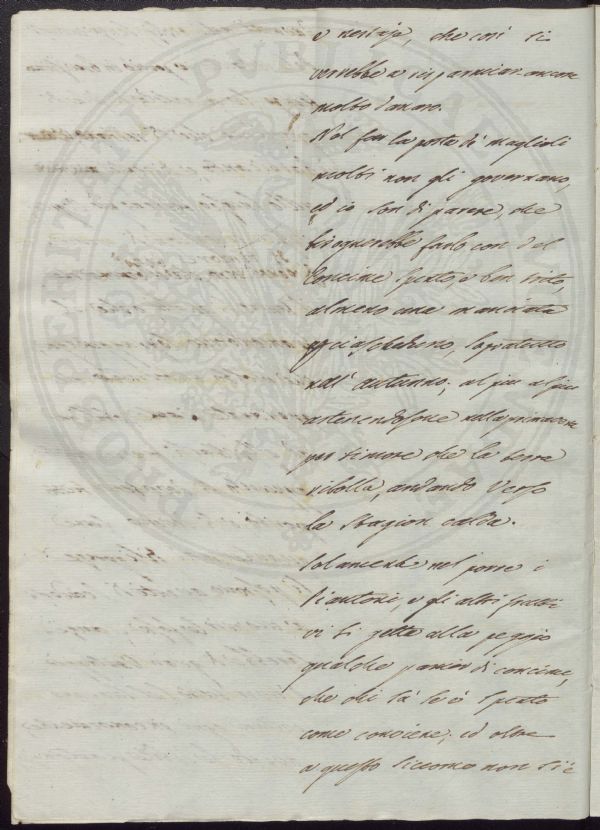 e nettaja, che così si
verrebbe a risparmiar ancora
molto danaro.
Nel far la posta di maglioli
molti non gli governano,
ed io son di parere, che
bisognerebbe farlo con del
Concime spento, e ben trito,
almeno una manciata
per ciascheduno, sopratutto
nell' Autunno; al più al più
astenendosene nella primavera
per timore che la terra
ribolla, andando verso
la stagion calda.
Solamente nel porre i
Piantoni, e gli altri frutti
vi si getta alla peggio
qualche panier di concime,
che chi sa se è spento
come conviene; ed oltre
a questo siccome non si è